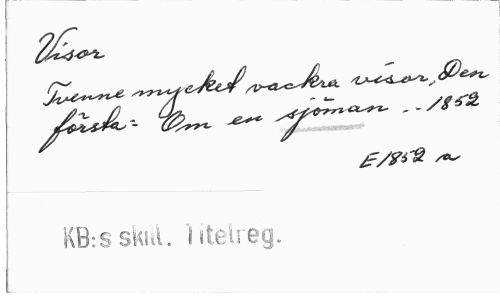 Visor
Tvenne mycket vackra visor, Den
första: Om en sjöman .. 1852
E 1852 a
KB:s skill. Titelreg.